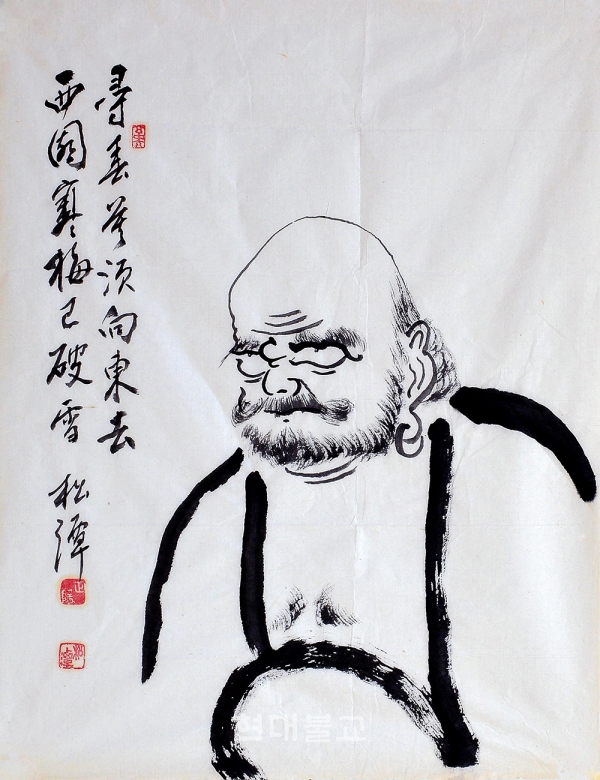 尋春莫須向東去
西園寒梅已破雪 松潭
현대불교